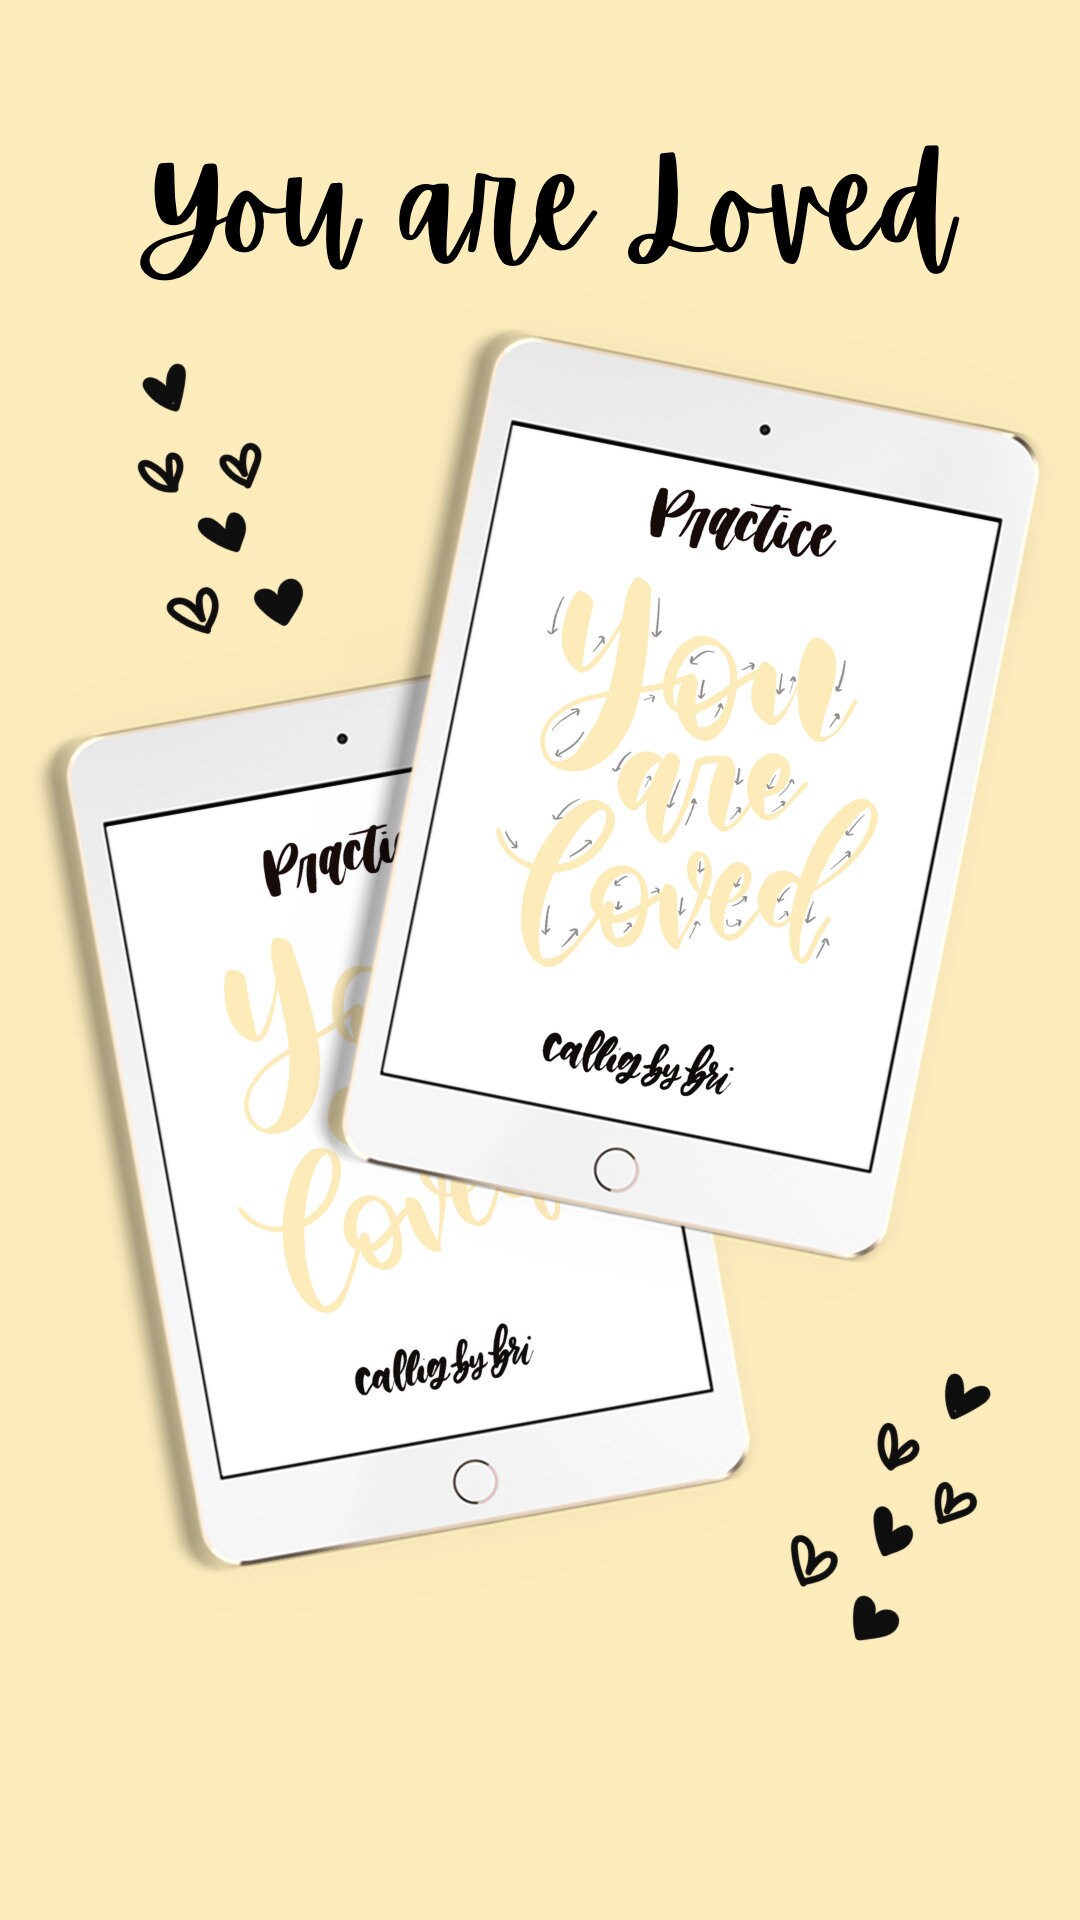 You are Loved
Practice
you
are
loved
callig by bri
Practi
yo
loved
callig by bri